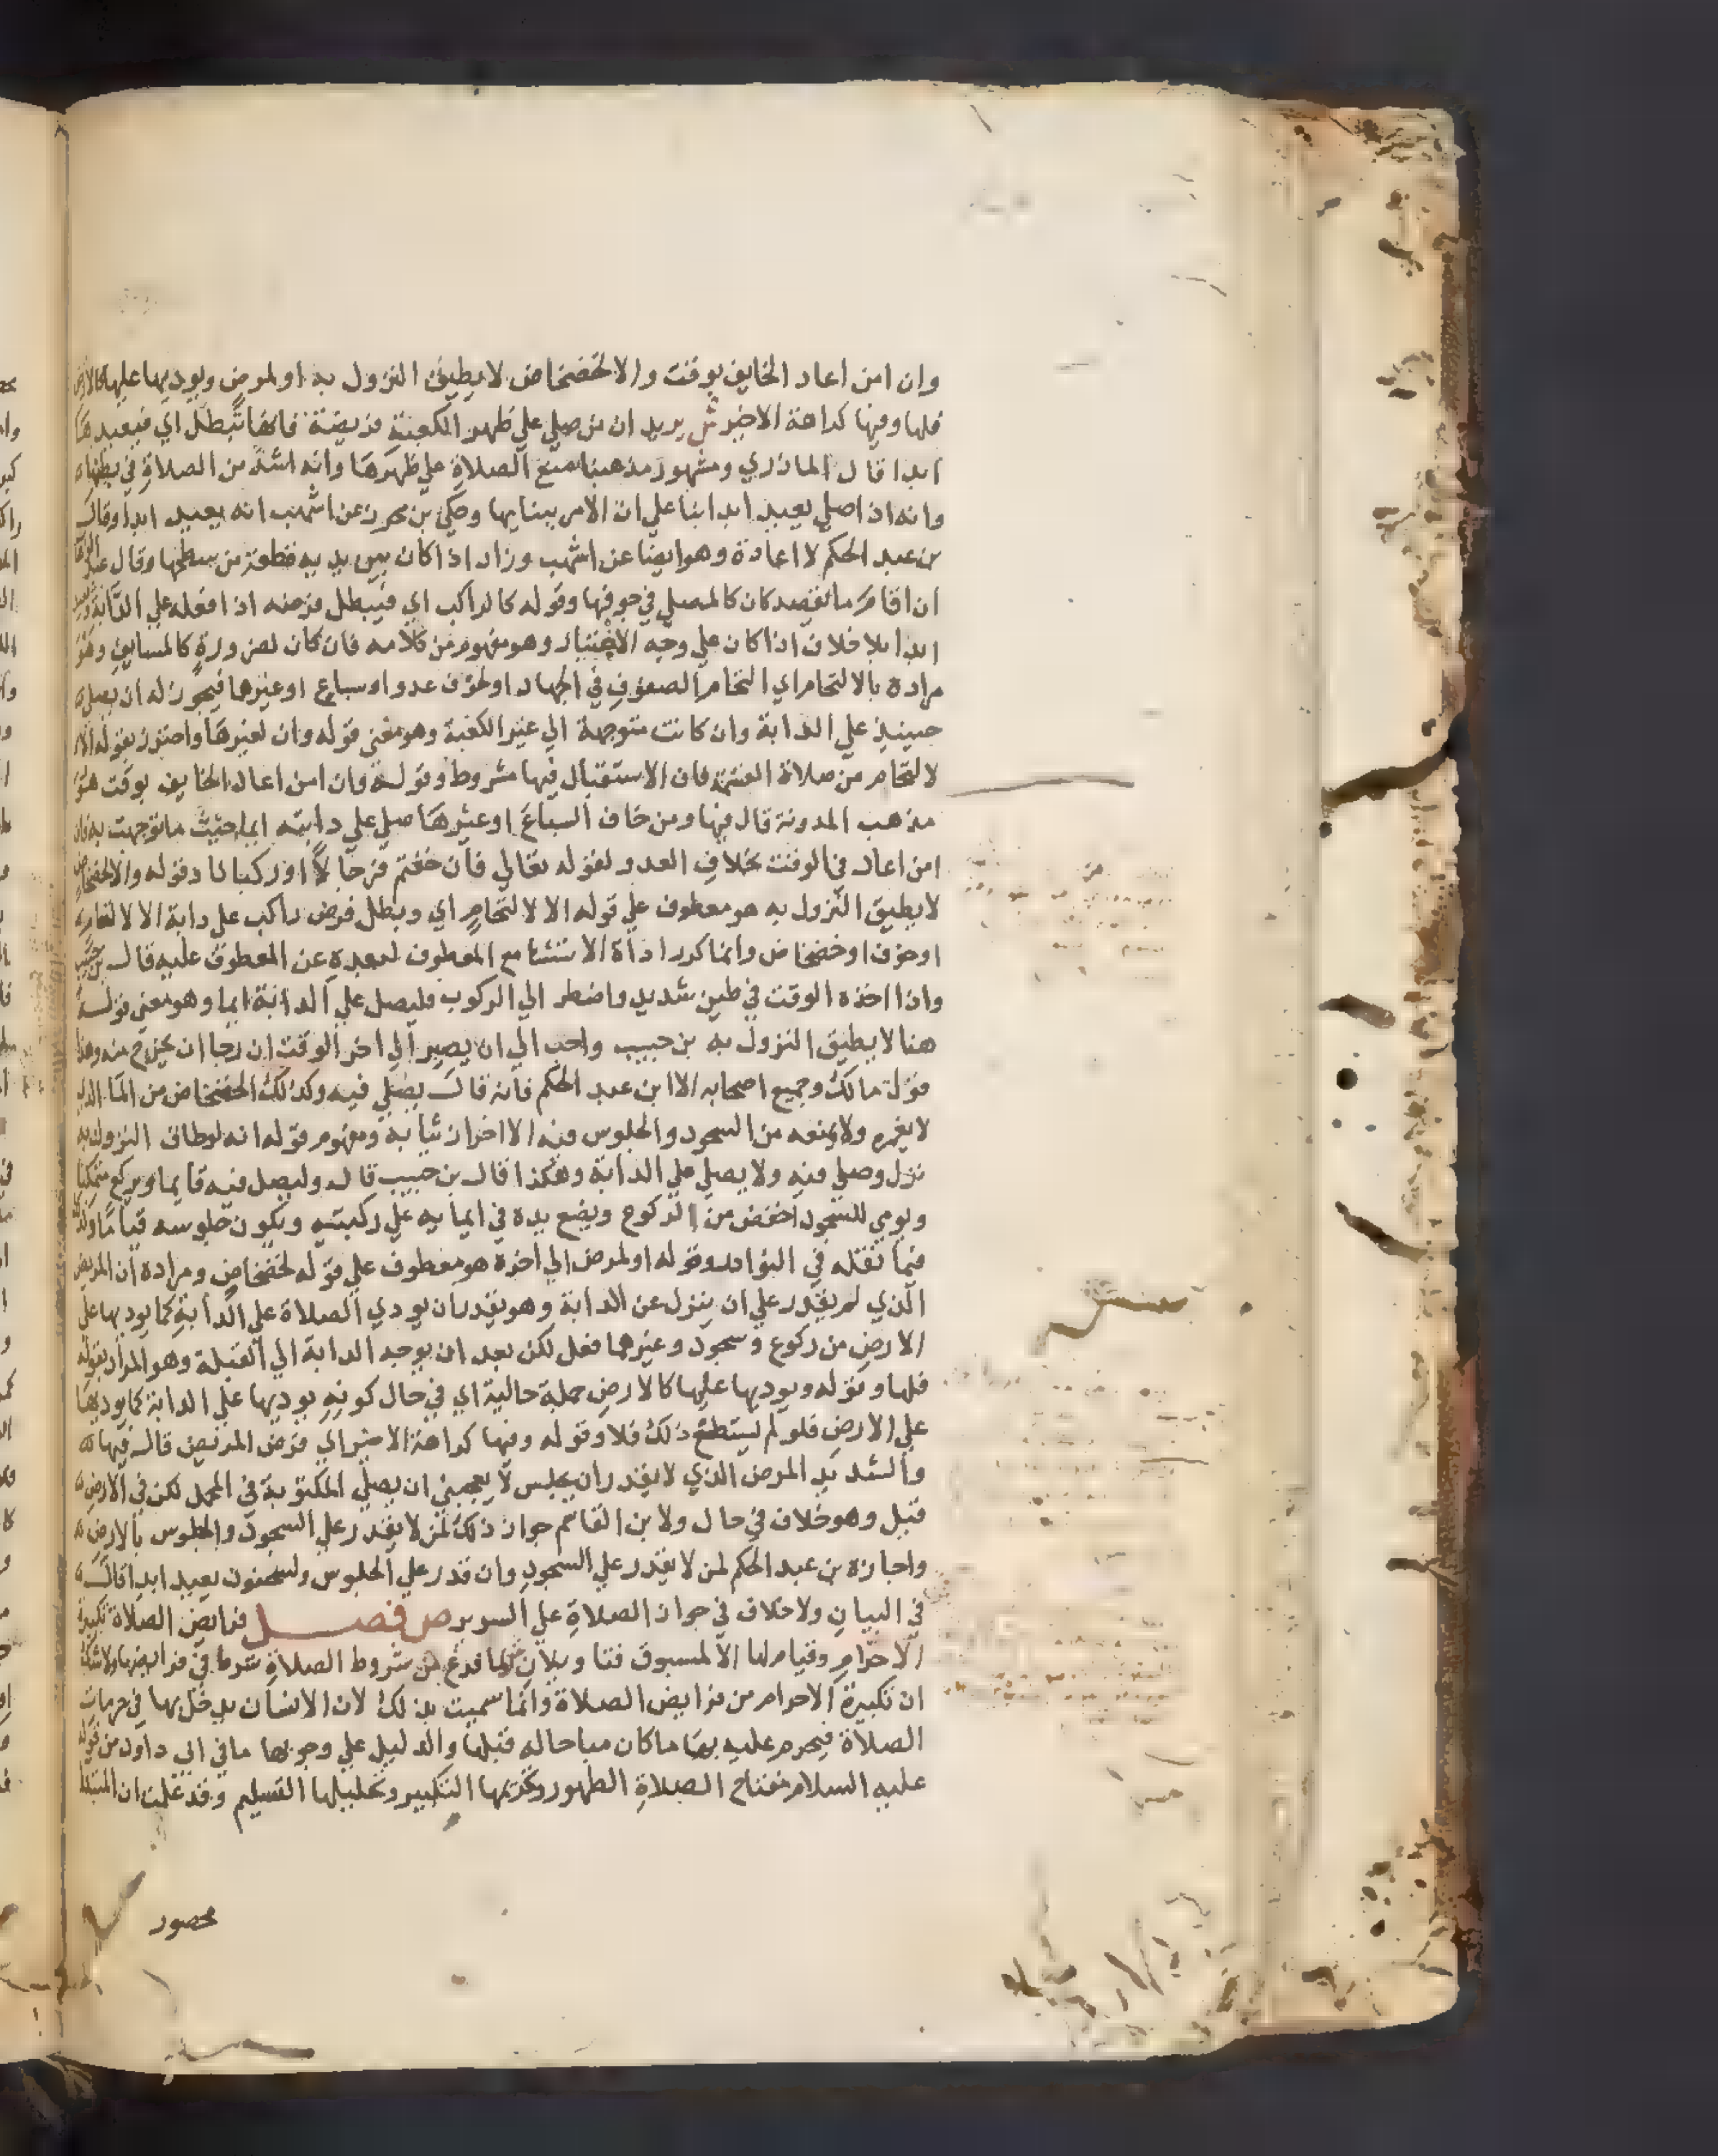 وان امن اعاد الخايف بوقت والا لخضخاض لا يطيق النزول به او لمرض ويوديها عليها كالارض
فلها وفيها كراهة الاخير ش يريد ان من صلي علي ظهر الكعبة فريضة فانها تبطل اي فيعيدها
ابدا قال المازري ومشهور مذهبنا منع الصلاة علي ظهرها وانه اشد من الصلاة في بطنها
وانه اذا صلي يعيد ابدا بنا علي ان الامر ببنايها وحكي بن محرز عن اشهب انه يعيد ابدا وقال
بن عبد الحكم لا اعادة وهو ايضا عن اشهب وزاد اذا كان بين يديه قطعة من سطحها وقال عبد الوهاب
ان اقام ما يقصد كان كالمصلي في جوفها وقوله كالراكب اي فيبطل فرضه اذا فعله علي الدابة ويعيد
ابدا بلا خلاف اذا كان علي وجه الاختيار وهو مفهوم من كلامه فان كان لضرورة كالمسايف وهو
مراده بالالتحام اي التحام الصفوف في الجهاد او لخوف عدو او سباع او غيرها فيجوز له ان يصلي
حينيذ علي الدابة وان كانت متوجهة الي غير الكعبة وهو معني قوله وان لغيرها واحترز بقوله الا
لالتحام من صلاة القسمة فان الاستقبال فيها مشروط وقوله وان امن اعاد الخايف بوقت هو
مذهب المدونة قال فيها ومن خاف السباع او غيرها صلي علي دابته ايما حيث ما توجهت به فان
امن اعاد في الوقت بخلاف العدو لقوله تعالي فان خفتم فرجالا او ركبانا وقوله والا لخضخاض
لا يطيق النزول به هو معطوف علي قوله الا لالتحام اي وبطل فرض راكب علي دابة الا لالتحام
او خوف او خضخاض وانما كرر اداة الاستثنا مع المعطوف لبعده عن المعطوف عليه قال بن حبيب
واذا اخذه الوقت في طين شديد واضطر الي الركوب فليصل علي الدابة ايما وهو معني قوله
هنا لا يطيق النزول به بن حبيب واحب الي ان يصير الي اخر الوقت ان رجا ان يخرج منه وهذا
قول مالك وجميع اصحابه الا ابن عبد الحكم فانه قال يصلي فيه وكذلك الخضخاض من الما الذي
لا يغمره ولا يمنعه من السجود والجلوس فيه الا احراز ثيابه ومفهوم قوله انه لو طاق النزول به
نزل وصلي فيه ولا يصلي علي الدابة وهكذا قال بن حبيب قال وليصل فيه قايما ويركع متمكنا
ويومي للسجود اخفض من الركوع ويضع يده في ايمايه علي ركبتيه ويكون جلوسه قياما وكذا
فيما نقله في النوادر وقوله او لمرض الي اخره هو معطوف علي قوله لخضخاض ومراده ان المريض
الذي لم يقدر علي ان ينزل عن الدابة وهو يقدر ان يودي الصلاة علي الدابة كما يوديها علي
الارض من ركوع وسجود وغيرهما فعل لكن بعد ان يوجه الدابة الي القبلة وهو المراد بقوله
فلها وقوله ويوديها عليها كالارض جملة حالية اي في حال كونه يوديها علي الدابة كما يوديها
علي الارض فلو لم يستطع ذلك فلا وقوله وفيها كراهة الاخير اي فرض المريض قال فيها
والشديد المرض الذي لا يقدر ان يجلس لا يعجبني ان يصلي المكتوبة في المحمل لكن في الارض
قيل وهو خلاف في حال ولابن القاسم جواز ذلك لمن لا يقدر علي السجود والجلوس بالارض
واجازه بن عبد الحكم لمن لا يقدر علي السجود وان قدر علي الجلوس ولسحنون يعيد ابدا قال
في البيان ولا خلاف في جواز الصلاة علي السرير ص فصل فرايض الصلاة تكبيرة
الاحرام وقيام لها الا لمسبوق فتاويلان ش لما فرغ من شروط الصلاة شرع في فرايضها ولا شك
ان تكبيرة الاحرام من فرايض الصلاة وانما سميت بذلك لان الانسان يدخل بها في حرمات
الصلاة فيحرم عليه بها ما كان مباحا له قبلها والدليل علي وجوبها ما في ابي داود من قوله
عليه السلام مفتاح الصلاة الطهور وتحريمها التكبير وتحليلها التسليم وقد علمت ان المبتدا
محصور